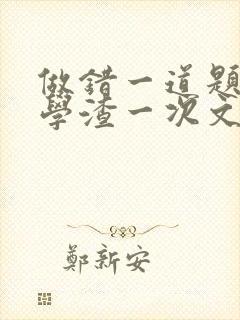 做錯一道題
學渣一次文
鄭新安